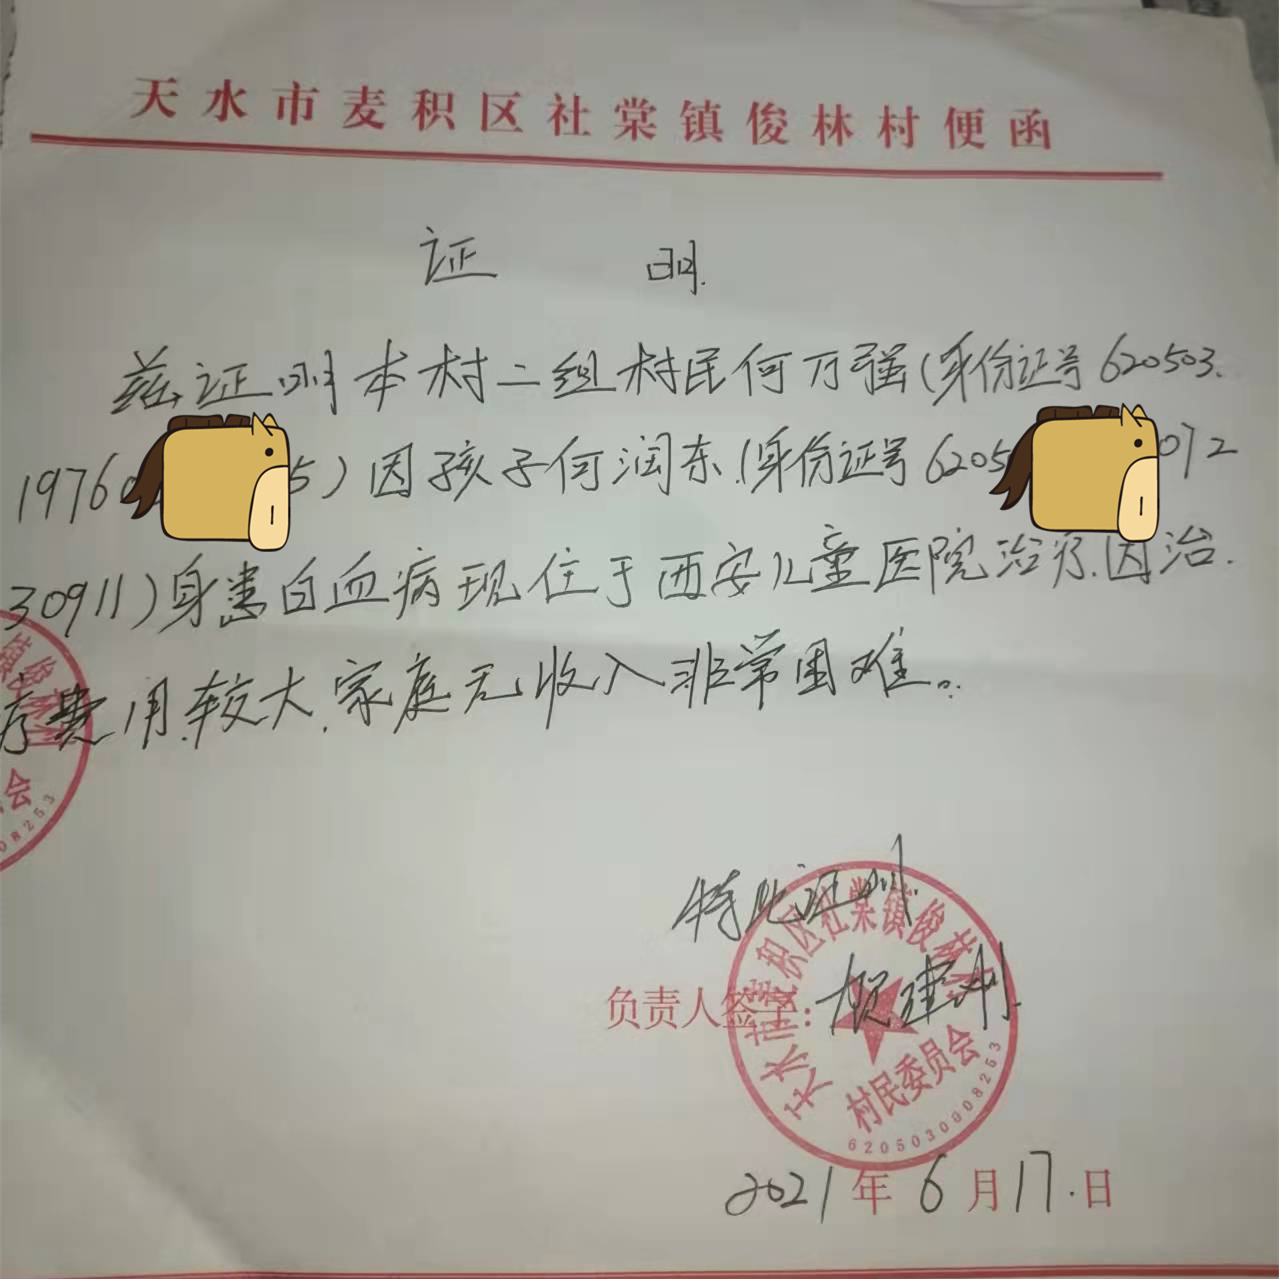 天水市麦积区社棠镇俊林村便函
证 明.
兹证明本村二组村民何万强(身份证号620503.
1976 5)因孩子何润东.(身份证号6205 072
30911)身患白血病现住于西安儿童医院治疗.因治.
疗费用.较大.家庭无收入非常困难。
镇俊林村
会
08253
特此证明.
负责人签字:
天水市麦积区社棠镇俊林村
村民委员会
6205030008253
2021年6月17.日